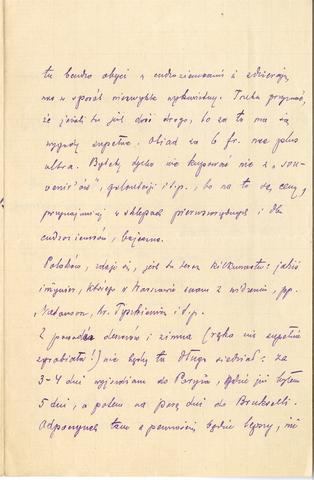 tu bardzo obyci z cudzoziemcami i zdzierają
nas w sposób niezwykle wykwintny. Trzeba przyznać,
że jeżeli tu jest dość drogo, to za to ma się
wygodę zupełną. Obiad za 6 fr. nec plus
ultra. Byleby tylko nie kupować nic z "sou-
venir'ów", galanterji i t.p., bo na to są ceny,
przynajmniej w sklepach pierwszorzędnych i dla
cudzoziemców, bajeczne.
Polaków, zdaje się, jest tu teraz kilkunastu: jakiś
inżynier, którego w Warszawie znam z widzenia, pp.
Natanson, hr. Tyszkiewicz i t.p.
Z powodu deszczów i zimna (ręka mi zupełnie
zgrabiała!) nie będę tu długo siedział: za
3-4 dni wyjeżdżam do Paryża, gdzie już byłem
5 dni, a potem na parę dni do Brukselli.
Odpoczynek tam z pewnością będzie lepszy, niż